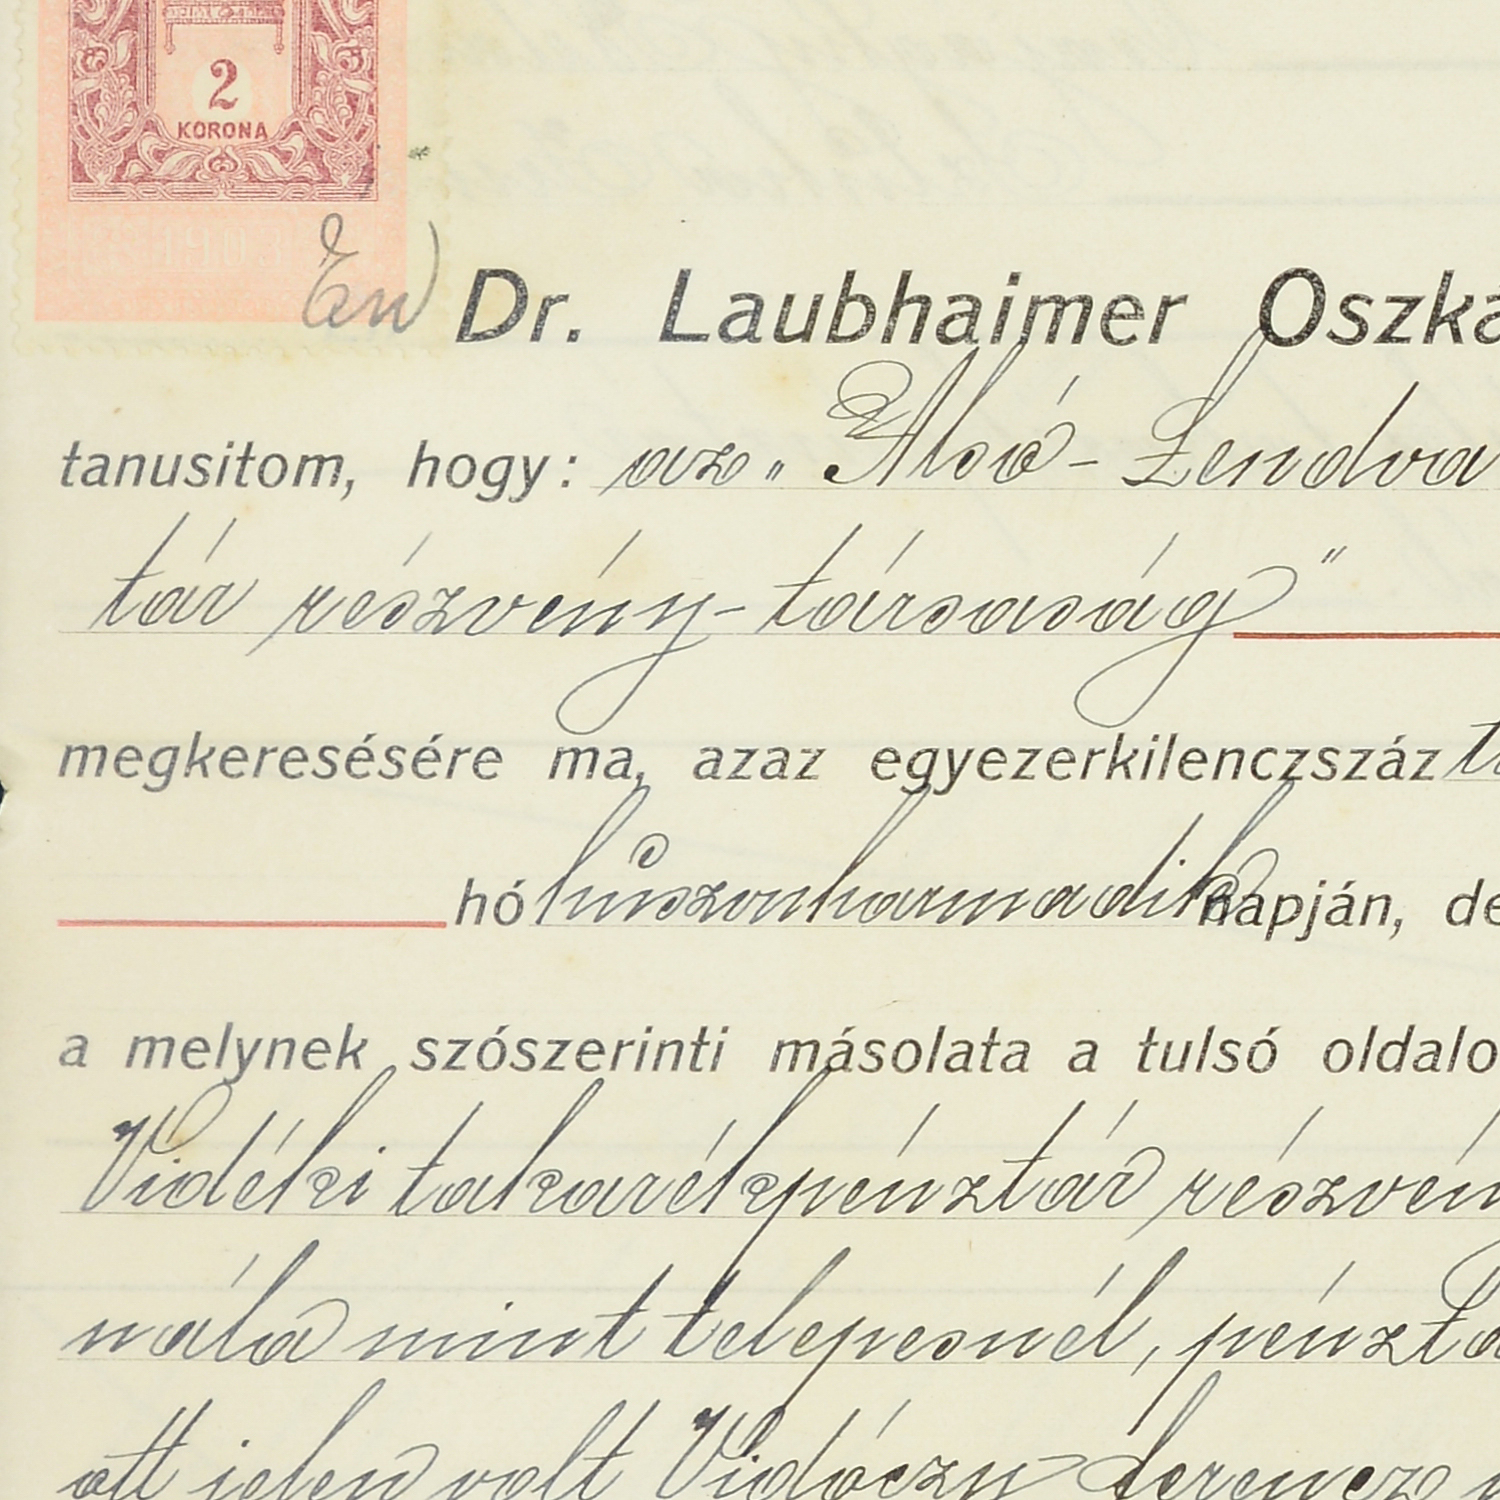 2
KORONA
1903
Én Dr. Laubhaimer Oszká
tanusitom, hogy: az „Alsó-Lendva
tár részvény-társaság"
megkeresésére ma, azaz egyezerkilenczszáz
hó huszonharmadik napján, de
a melynek szószerinti másolata a tulsó oldalo
Vidéki takarékpénztár részvén
nála mint telepesnél, pénztá
ott jelen volt Vidóczy Ferencz